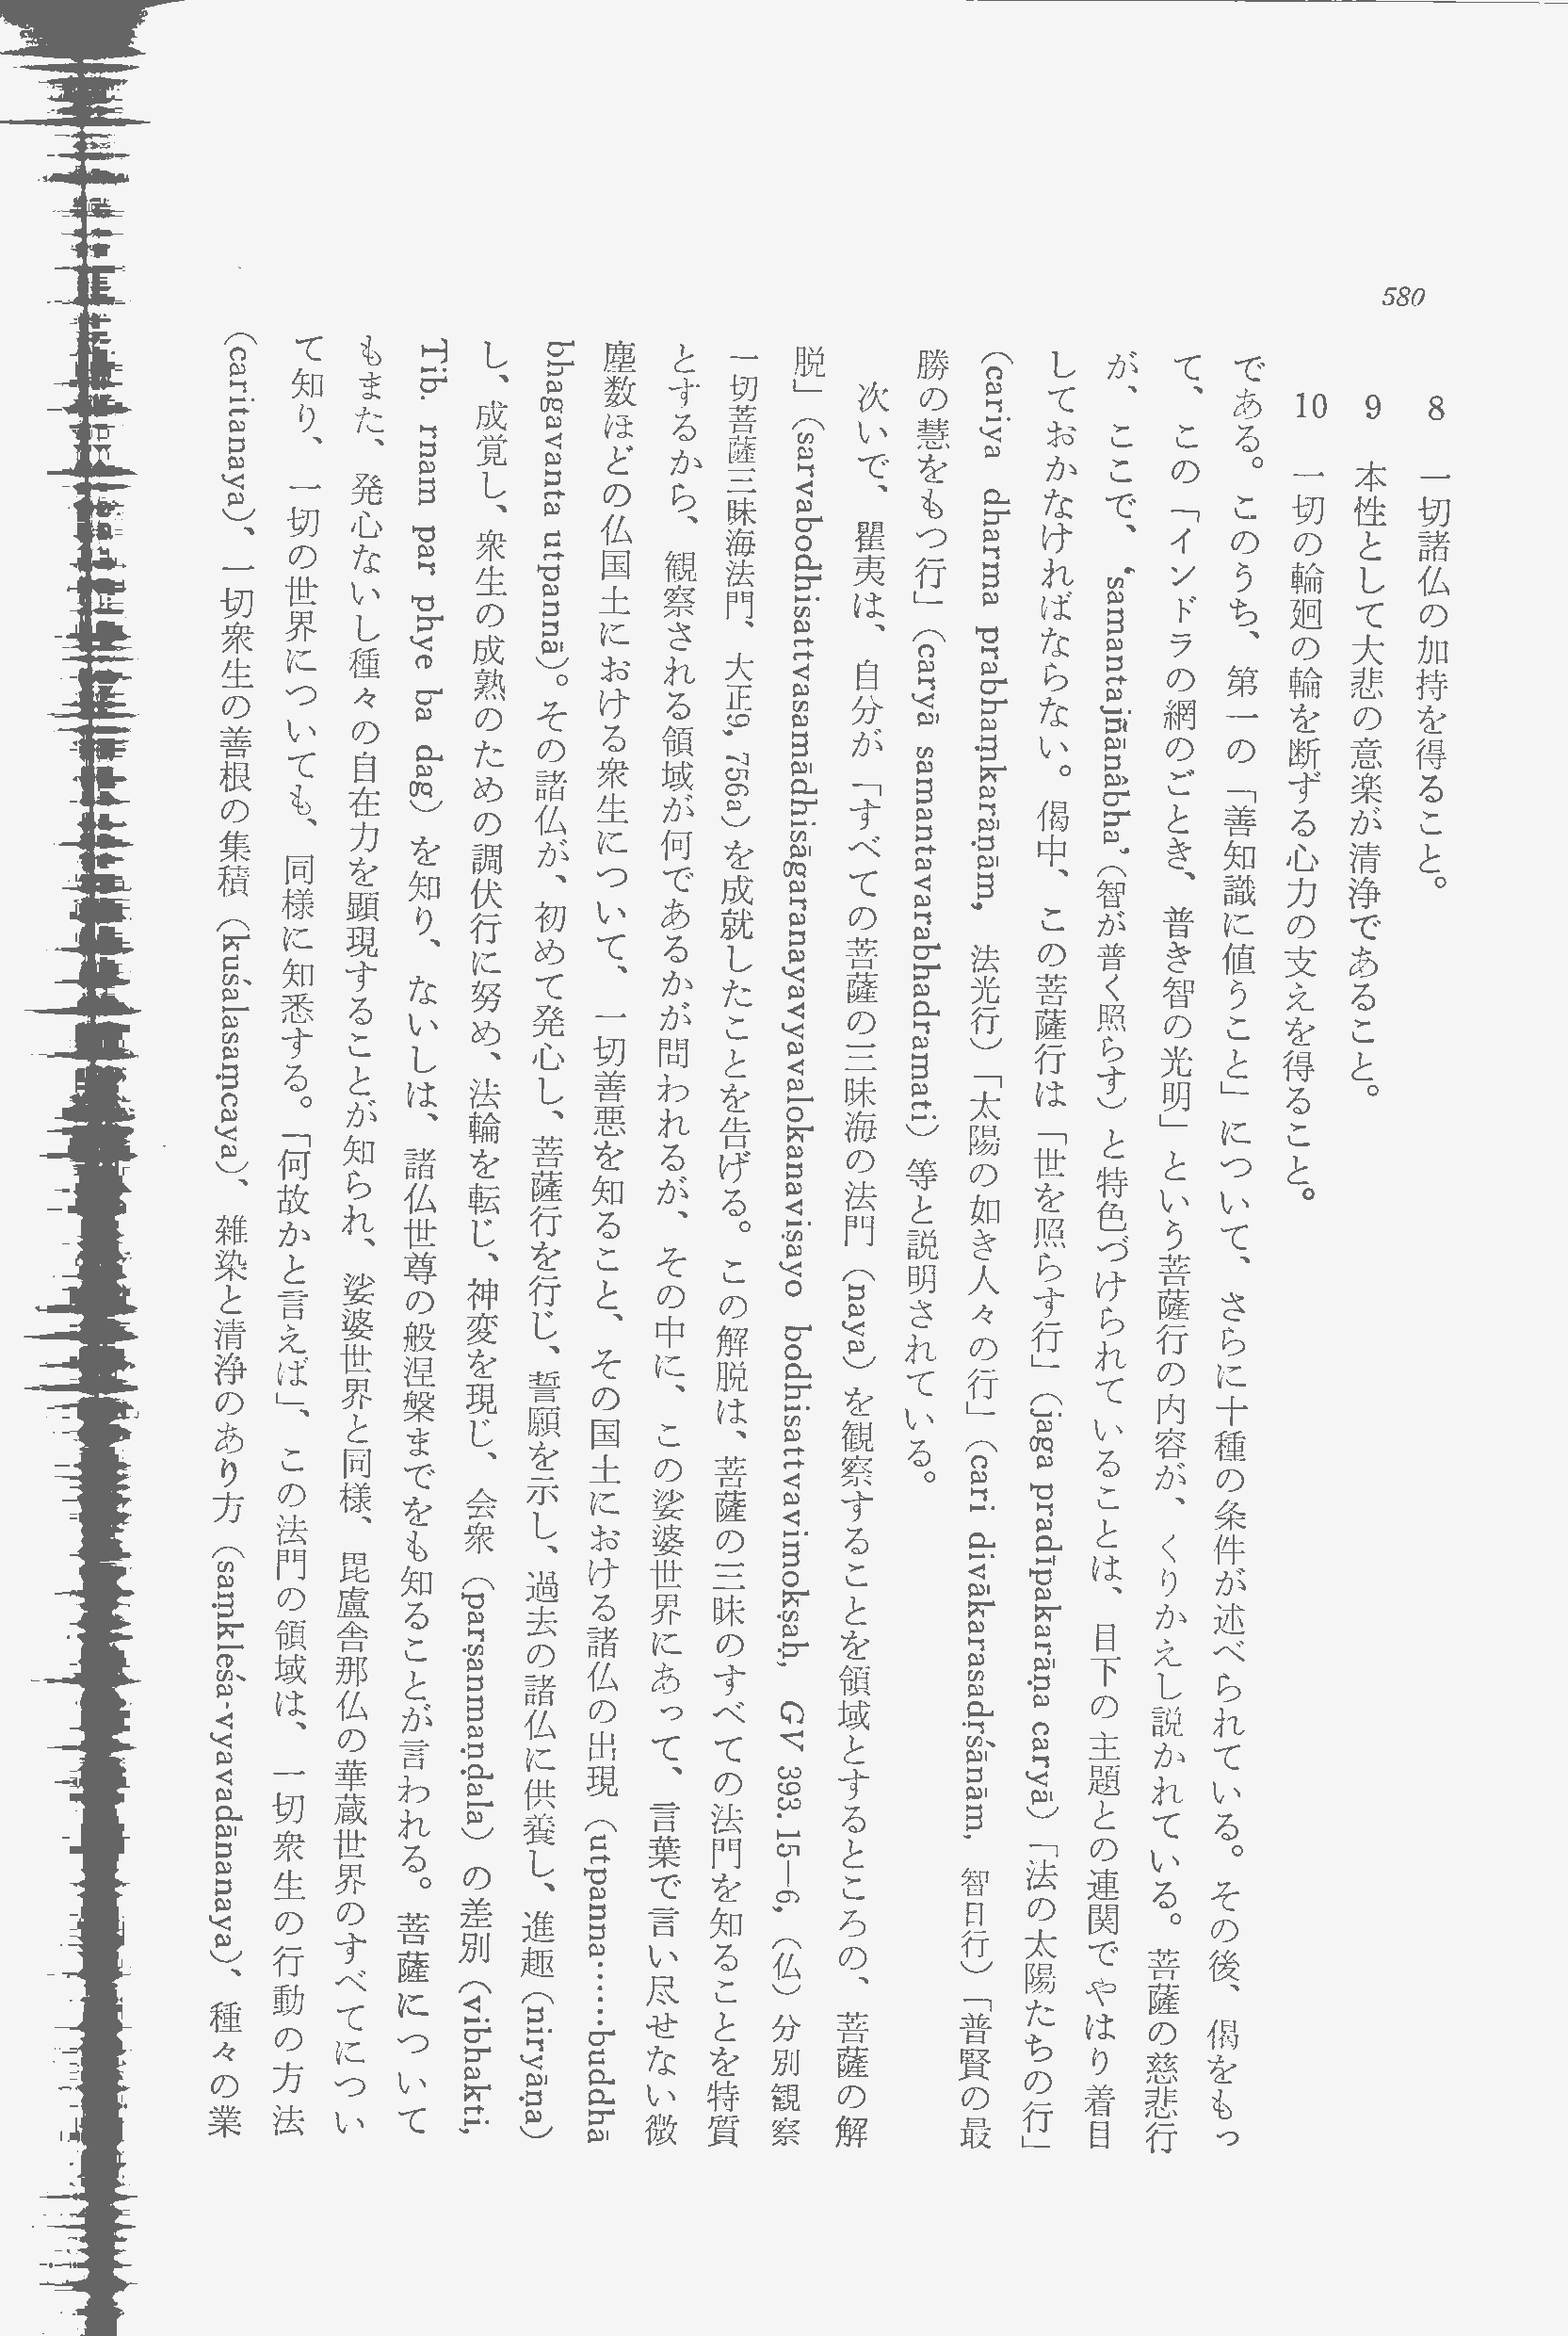 580
8 一切諸仏の加持を得ること。
9 本性として大悲の意楽が清浄であること。
10 一切の輪廻の輪を断ずる心力の支えを得ること。
である。このうち、第一の「善知識に値うこと」について、さらに十種の条件が述べられている。その後、偈をもっ
て、この「インドラの網のごとき、普き智の光明」という菩薩行の内容が、くりかえし説かれている。菩薩の慈悲行
が、ここで、‘samantajñānâbha’（智が普く照らす）と特色づけられていることは、目下の主題との連関でやはり着目
しておかなければならない。偈中、この菩薩行は「世を照らす行」（jaga pradīpakarāṇa caryā）「法の太陽たちの行」
（cariya dharma prabhaṃkarāṇām, 法光行）「太陽の如き人々の行」（cari divākarasadṛśānām, 智日行）「普賢の最
勝の慧をもつ行」（caryā samantavarabhadramati）等と説明されている。
次いで、瞿夷は、自分が「すべての菩薩の三昧海の法門（naya）を観察することを領域とするところの、菩薩の解
脱」（sarvabodhisattvasamādhisāgaranayavyavalokanaviṣayo bodhisattvavimokṣaḥ, GV 393. 15—6,（仏）分別観察
一切菩薩三昧海法門、大正9, 756a）を成就したことを告げる。この解脱は、菩薩の三昧のすべての法門を知ることを特質
とするから、観察される領域が何であるかが問われるが、その中に、この娑婆世界にあって、言葉で言い尽せない微
塵数ほどの仏国土における衆生について、一切善悪を知ること、その国土における諸仏の出現（utpanna……buddhā
bhagavanta utpannā）。その諸仏が、初めて発心し、菩薩行を行じ、誓願を示し、過去の諸仏に供養し、進趣（niryāṇa）
し、成覚し、衆生の成熟のための調伏行に努め、法輪を転じ、神変を現じ、会衆（parṣanmaṇḍala）の差別（vibhakti,
Tib. rnam par phye ba dag）を知り、ないしは、諸仏世尊の般涅槃までをも知ることが言われる。菩薩について
もまた、発心ないし種々の自在力を顕現することが知られ、娑婆世界と同様、毘盧舎那仏の華蔵世界のすべてについ
て知り、一切の世界についても、同様に知悉する。「何故かと言えば」、この法門の領域は、一切衆生の行動の方法
（caritanaya）、一切衆生の善根の集積（kuśalasaṃcaya）、雑染と清浄のあり方（saṃkleśa-vyavadānanaya）、種々の業